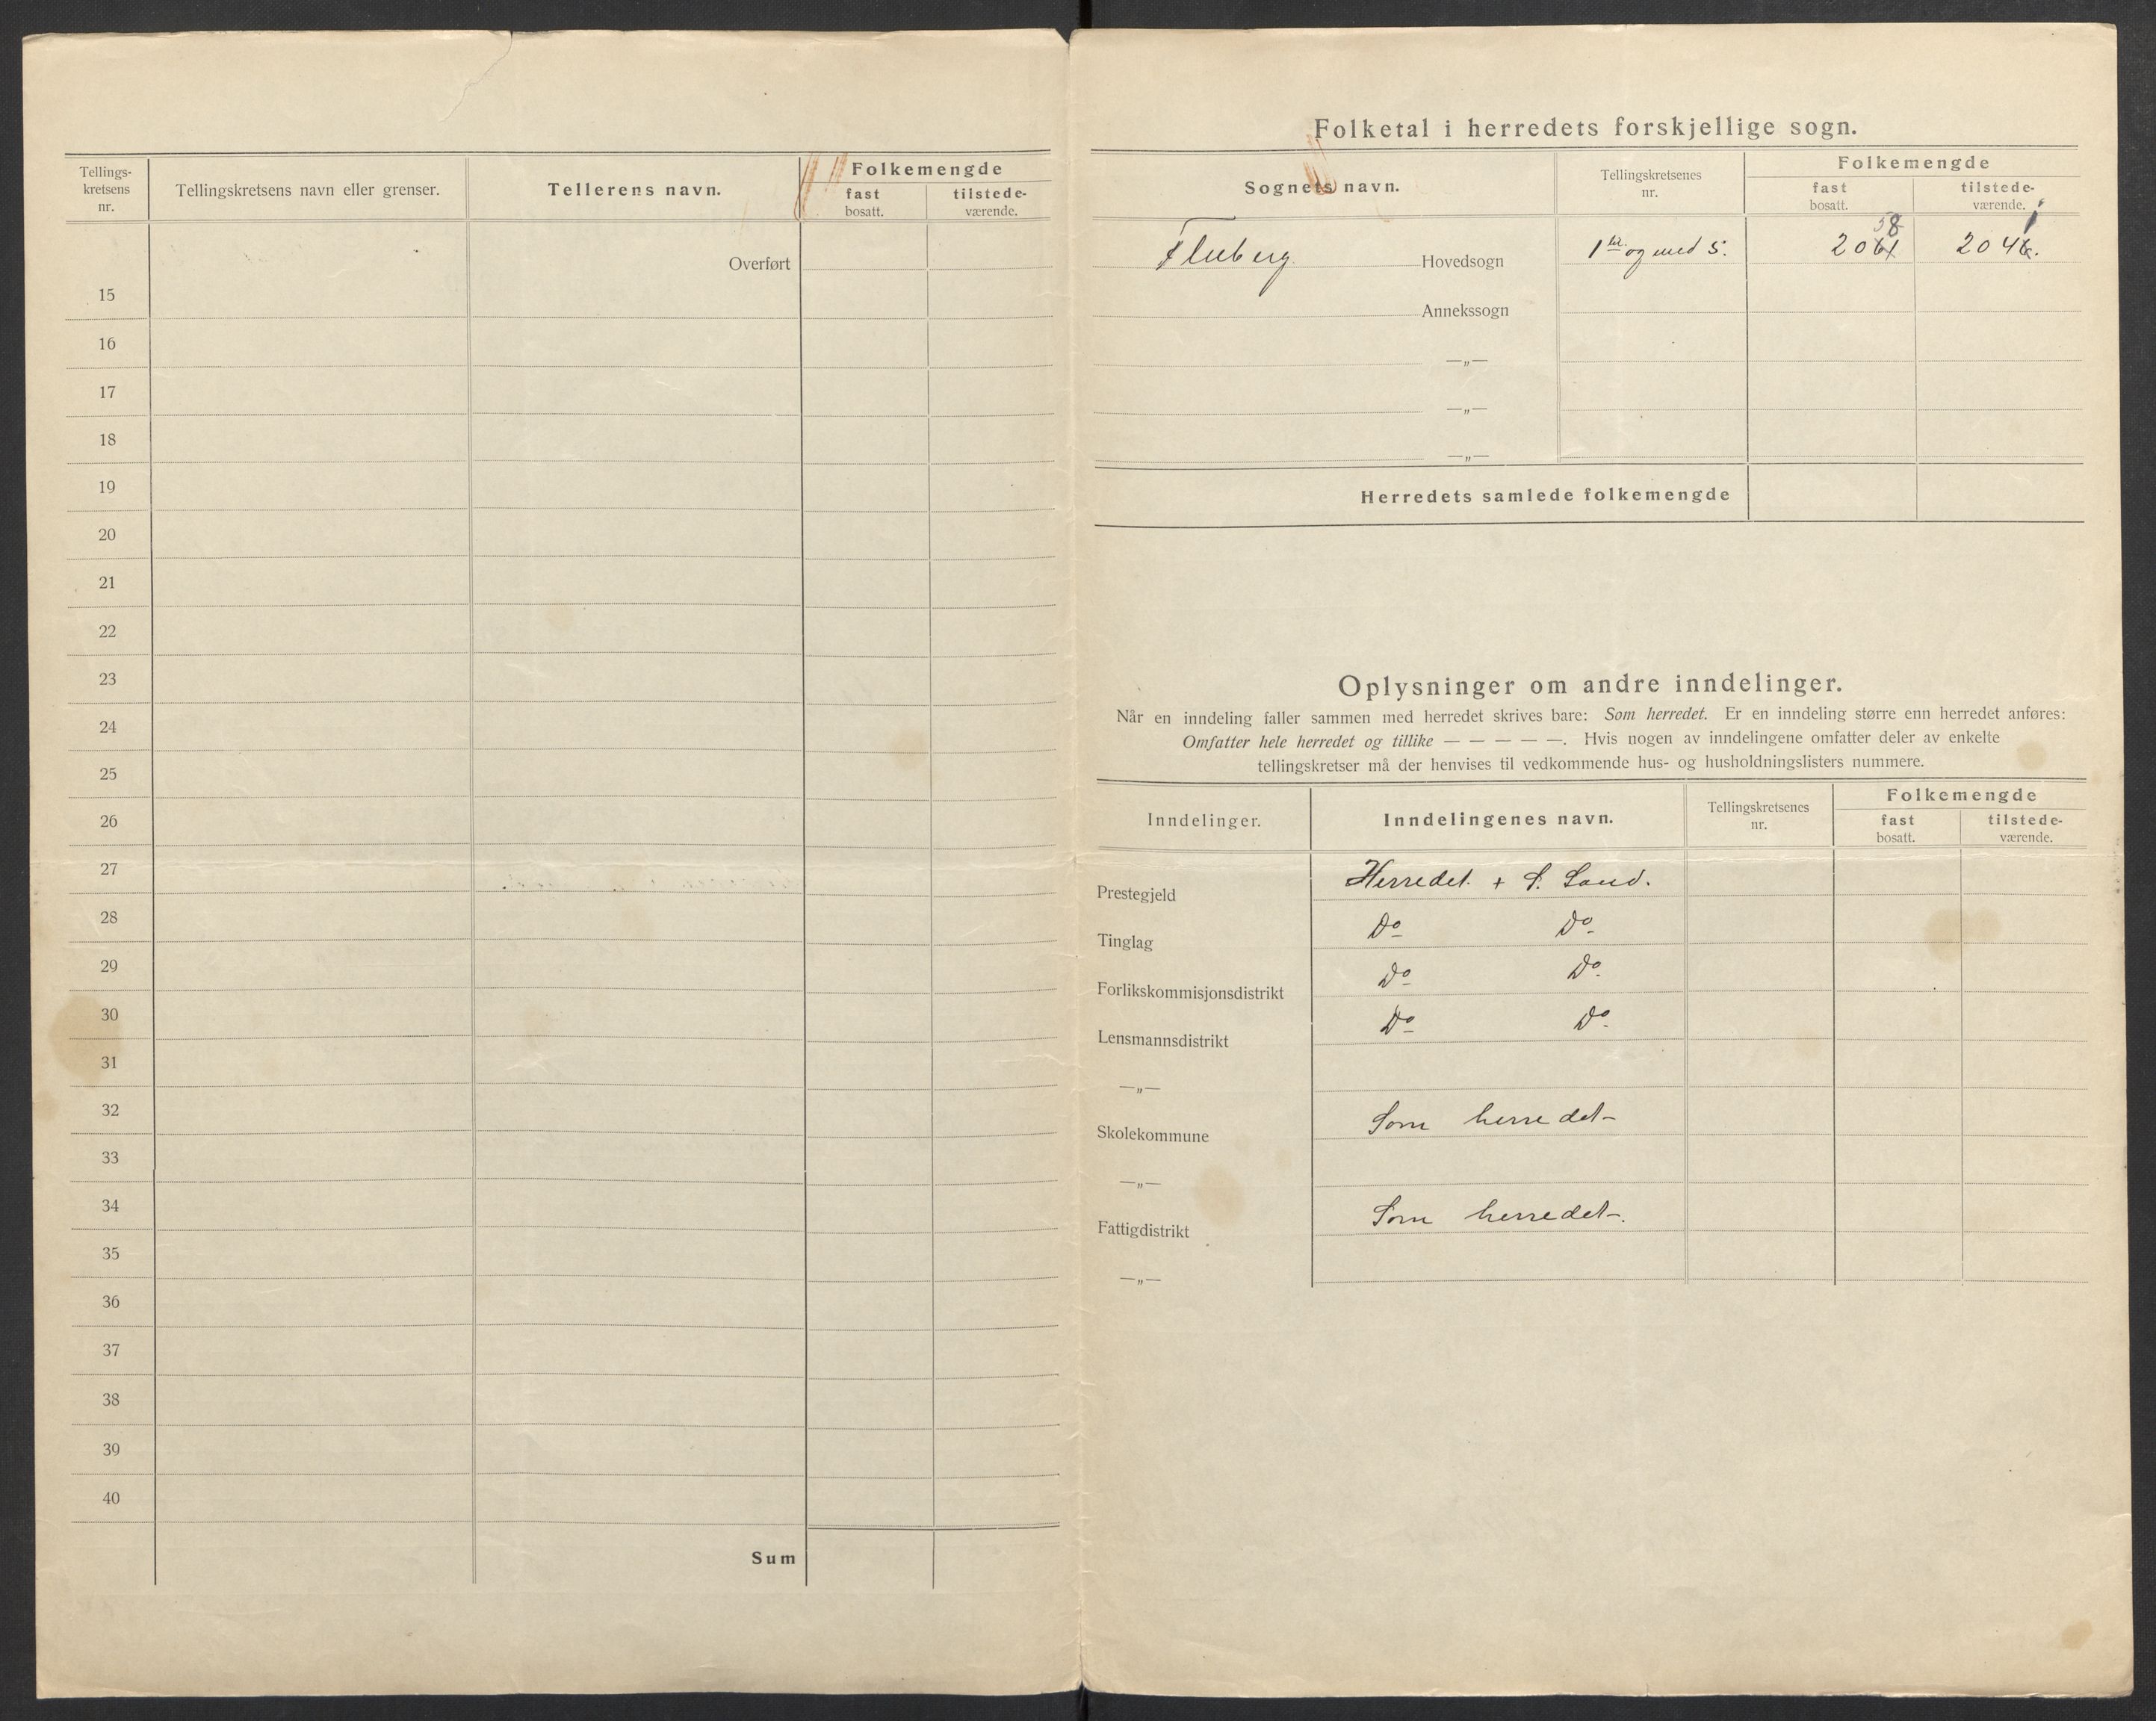 Tellings-
kretsens
nr.
Tellingskretsens navn eller grenser.
Tellerens navn.
Folkemengde
fast
bosatt.
tilstede-
værende.
Overført
15
16
17
18
19
20
21
22
23
24
25
26
27
28
29
30
31
32
33
34
35
36
37
38
39
40
Sum
Folketal i herredets forskjellige sogn.
Sognets navn.
Tellingskretsenes
nr.
Folkemengde
fast
bosatt.
tilstede-
værende.
58 1
Fluberg Hovedsogn 1 til og med 5. 2061 2046.
Annekssogn
—„—
—„—
—„—
Herredets samlede folkemengde
Oplysninger om andre inndelinger.
Når en inndeling faller sammen med herredet skrives bare: Som herredet. Er en inndeling større enn herredet anføres:
Omfatter hele herredet og tillike — — — — —. Hvis nogen av inndelingene omfatter deler av enkelte
tellingskretser må der henvises til vedkommende hus- og husholdningslisters nummere.
Inndelinger.
Inndelingenes navn.
Tellingskretsenes
nr.
Folkemengde
fast
bosatt.
tilstede-
værende.
Prestegjeld Herredet + S. Land.
Tinglag Do Do.
Forlikskommisjonsdistrikt Do Do.
Lensmannsdistrikt Do Do.
—„—
Skolekommune Som herredet
—„—
Fattigdistrikt Som herredet.
—„—